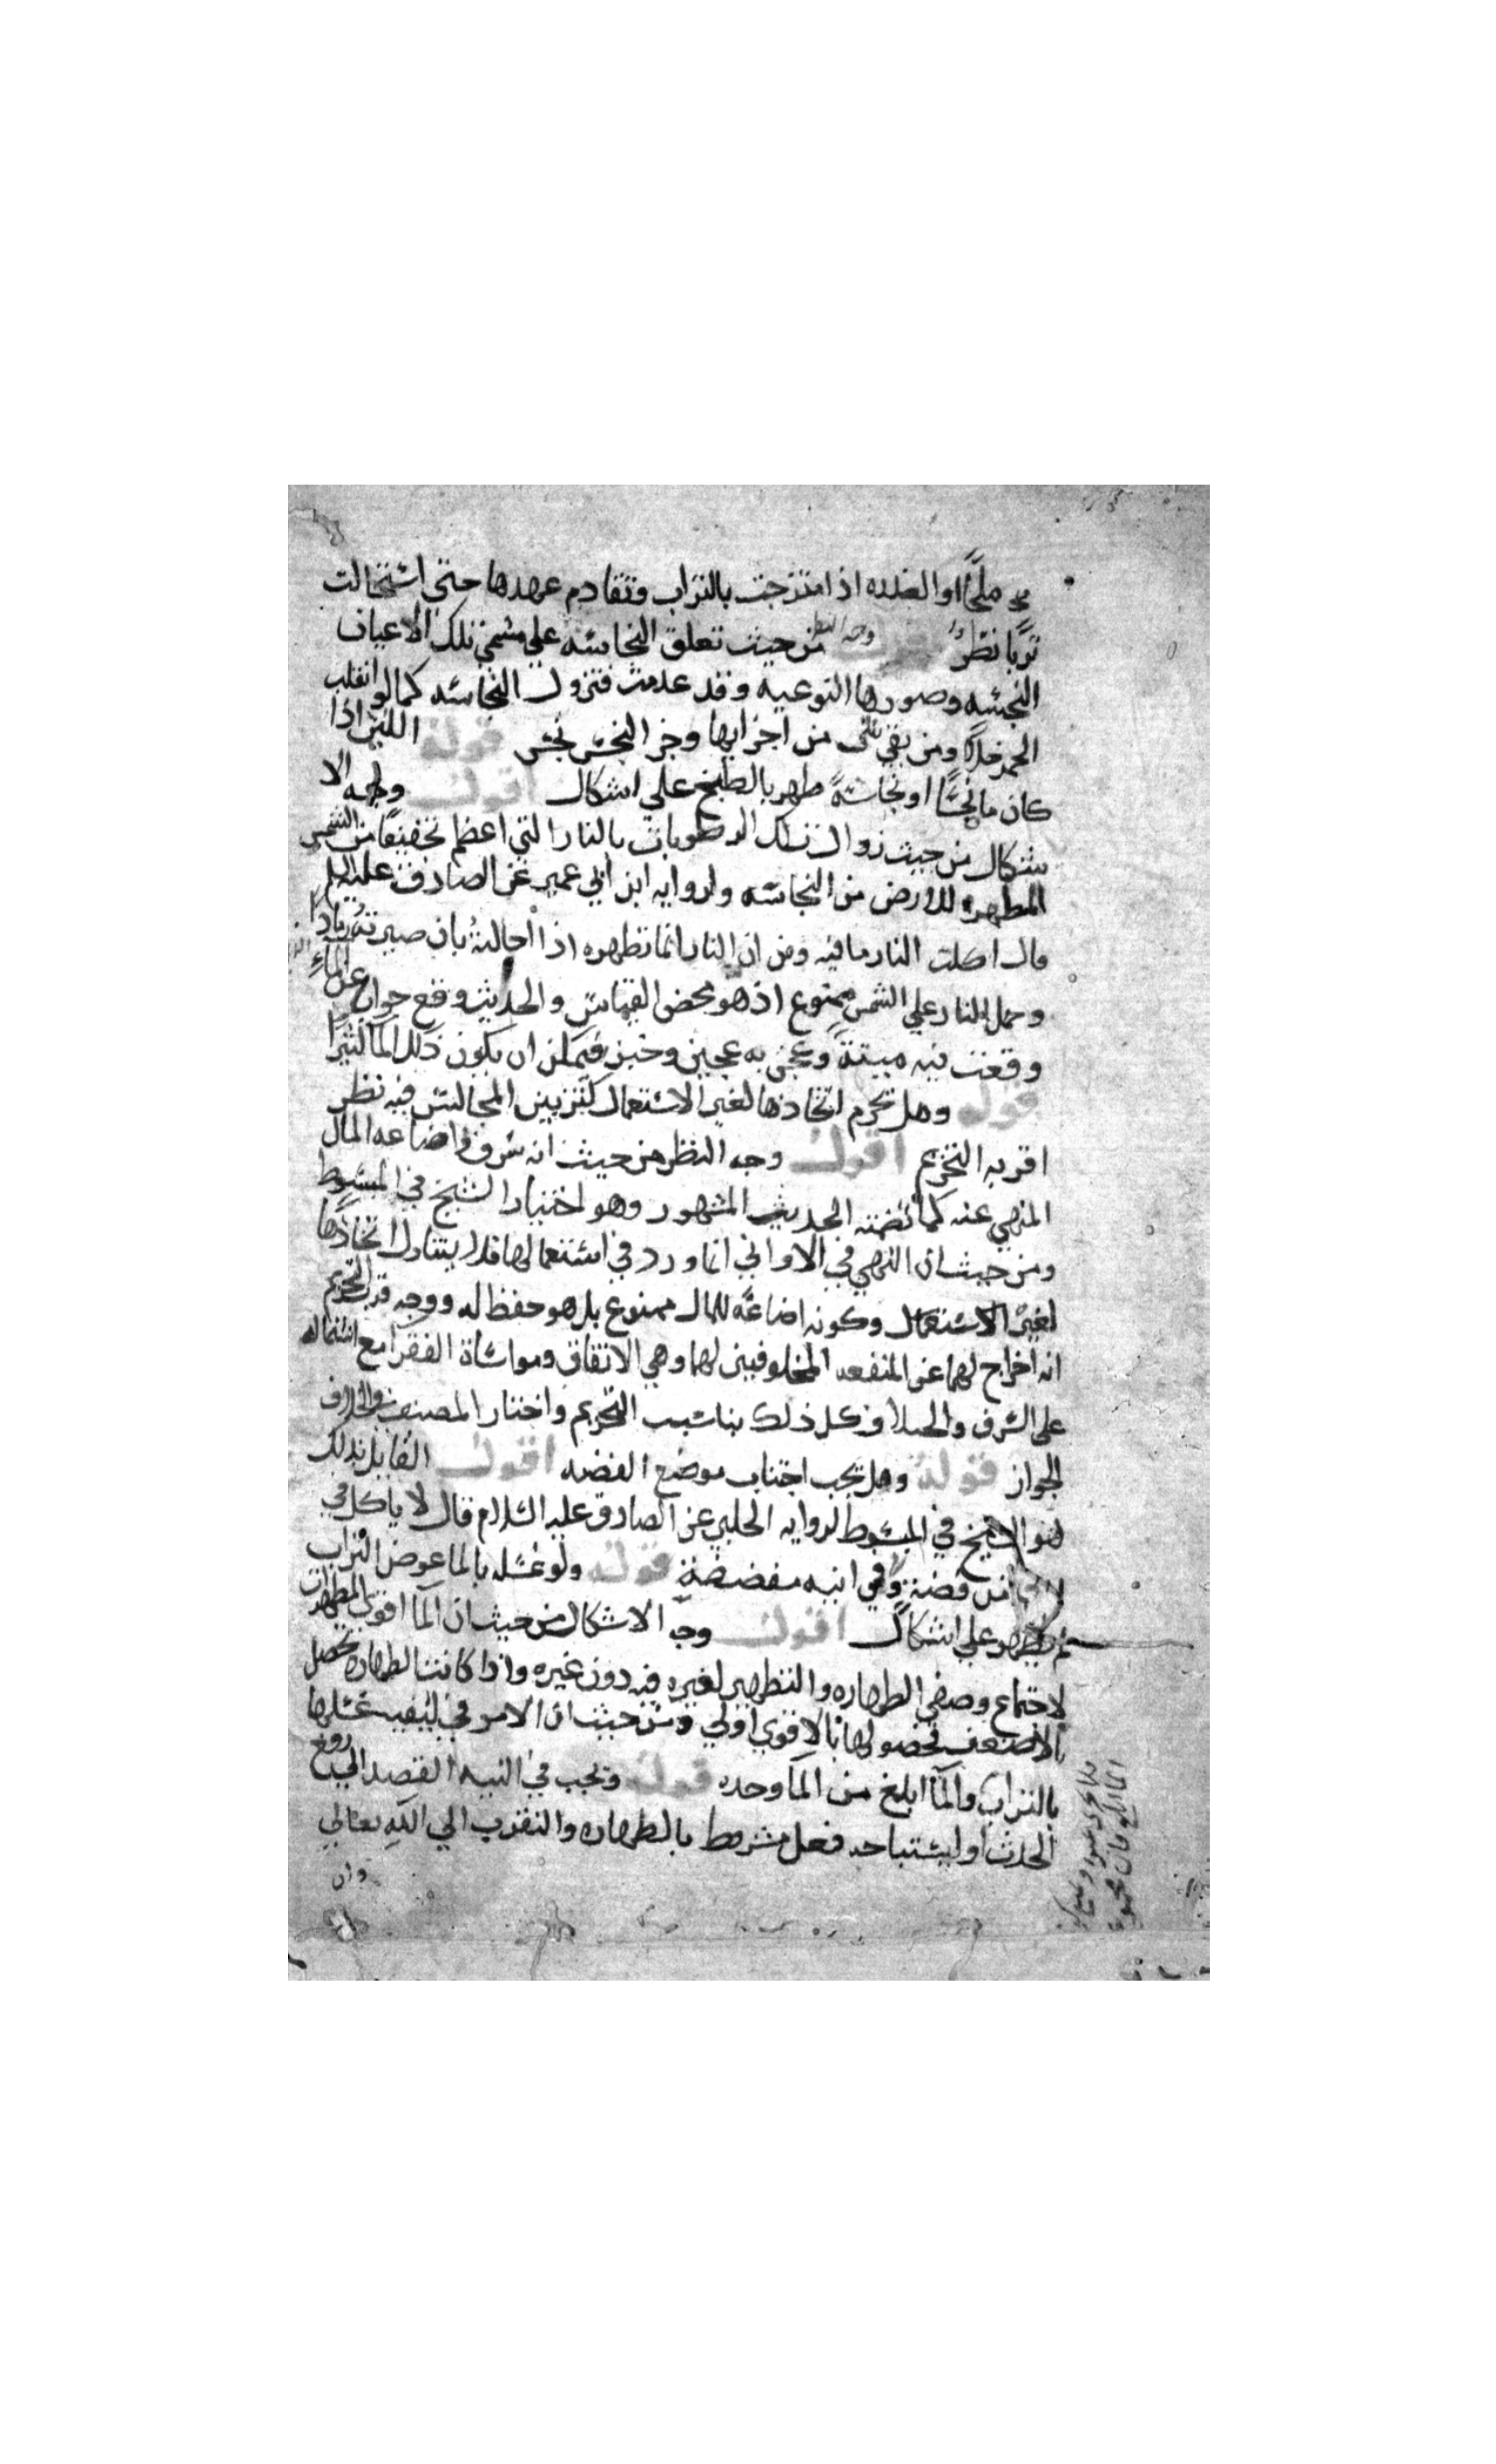 ملحًا او العذره اذا امتزجت بالتراب وتقادم عهدها حتى استحالت
ترابًا نظر اقول وجه النظر من حيث تعلق النجاسه على مسمى تلك الاعيان
النجسه وصورها النوعيه وقد عدمت فتزول النجاسه كما لو انقلب
الخمر خلا ومن بقى شى من اجزايها وجز النجس نجس قوله اللبن اذا
كان ماؤه نجسًا او نجاسةً طهر بالطبخ على اشكال اقول وجه الا
شكال من حيث زوال تلك الرطوبات بالنار التي اعظم تجفيفًا من الشمس
المطهره للارض من النجاسه ولروايه ابن ابي عمير عن الصادق عليه السلم
قال اكلت النار ما فيه ومن ان النار انما تطهره اذا احالته بان صيرته رمادًا
وحمل النار على الشمس ممنوع اذ هو محض القياس والحديث وقع جوابا عن الماء
وقعت فيه ميتةً وعجن به عجين وخبز فيمكن ان يكون ذلك الما كثيرًا
قوله وهل تحرم اتخاذها لغير الاستعمال كتزيين المجالس فيه نظر
اقربه التحريم اقول وجه النظر من حيث انه سرف واضاعه المال
المنهي عنه كما تضمنه الحديث المشهور وهو اختيار الشيخ في المبسوط
ومن حيث ان النهي في الاواني انما ورد في استعمالها فلا يتناول اتخاذها
لغير الاستعمال وكونه اضاعةً للمال ممنوع بل هو حفظ له ووجه قرب التحريم
انه اخراج لهما عن المنفعه المخلوقين لها وهي الانفاق ومواساة الفقرا مع اشتماله
على السرف والخيلا وكل ذلك يناسب التحريم واختار المصنف في الخلاف
الجواز قوله وهل يجب اجتناب موضع الفضه اقول القايل بذلك
هو الشيخ في المبسوط لروايه الحلبي عن الصادق عليه السلام قال لا ياكل في
انيه من فضة ولا في انيه مفضضة قوله ولو غسله بالما عوض التراب
لم يطهر على اشكال اقول وجه الاشكال من حيث ان الما اقوى المطهرات
لاجتماع وصفي الطهاره والتطهير لغيره فيه دون غيره واذا كانت الطهاره تحصل
بالاضعف فحصولها بالاقوي اولي ومن حيث ان الامر في كيفيه غسلها
بالتراب والما ابلغ من الما وحده قوله ويجب في النيه القصد الى رفع
الحدث او استباحه فعل مشروط بالطهاره والتقرب الي الله تعالى
وان